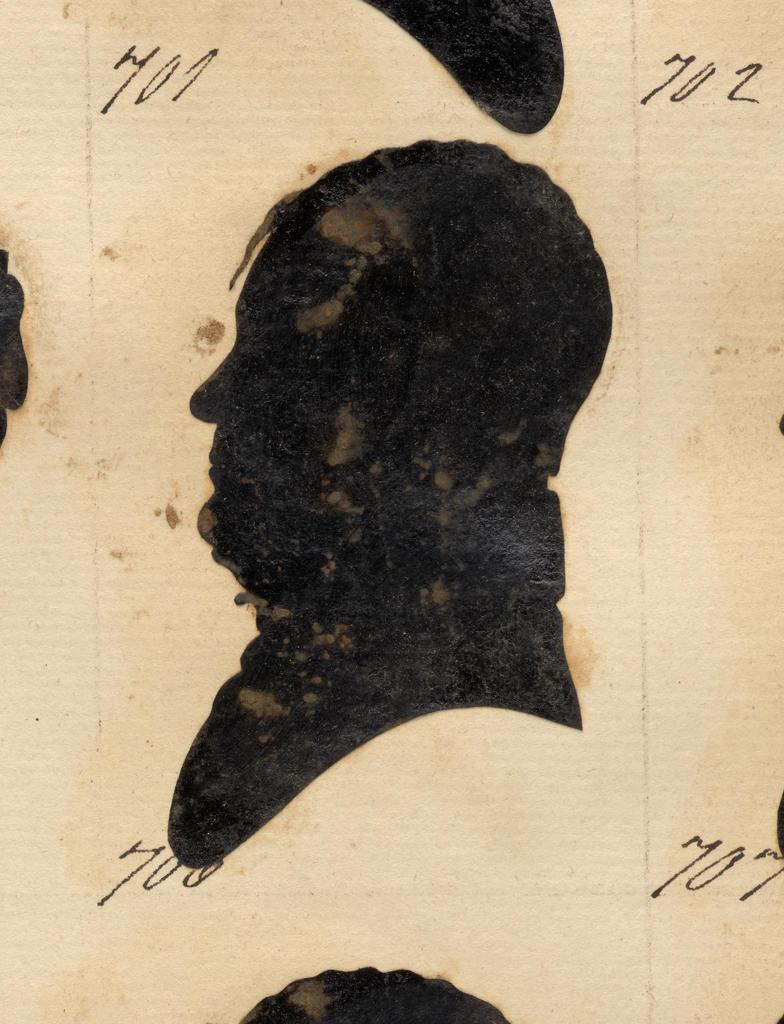 701 702
706 707